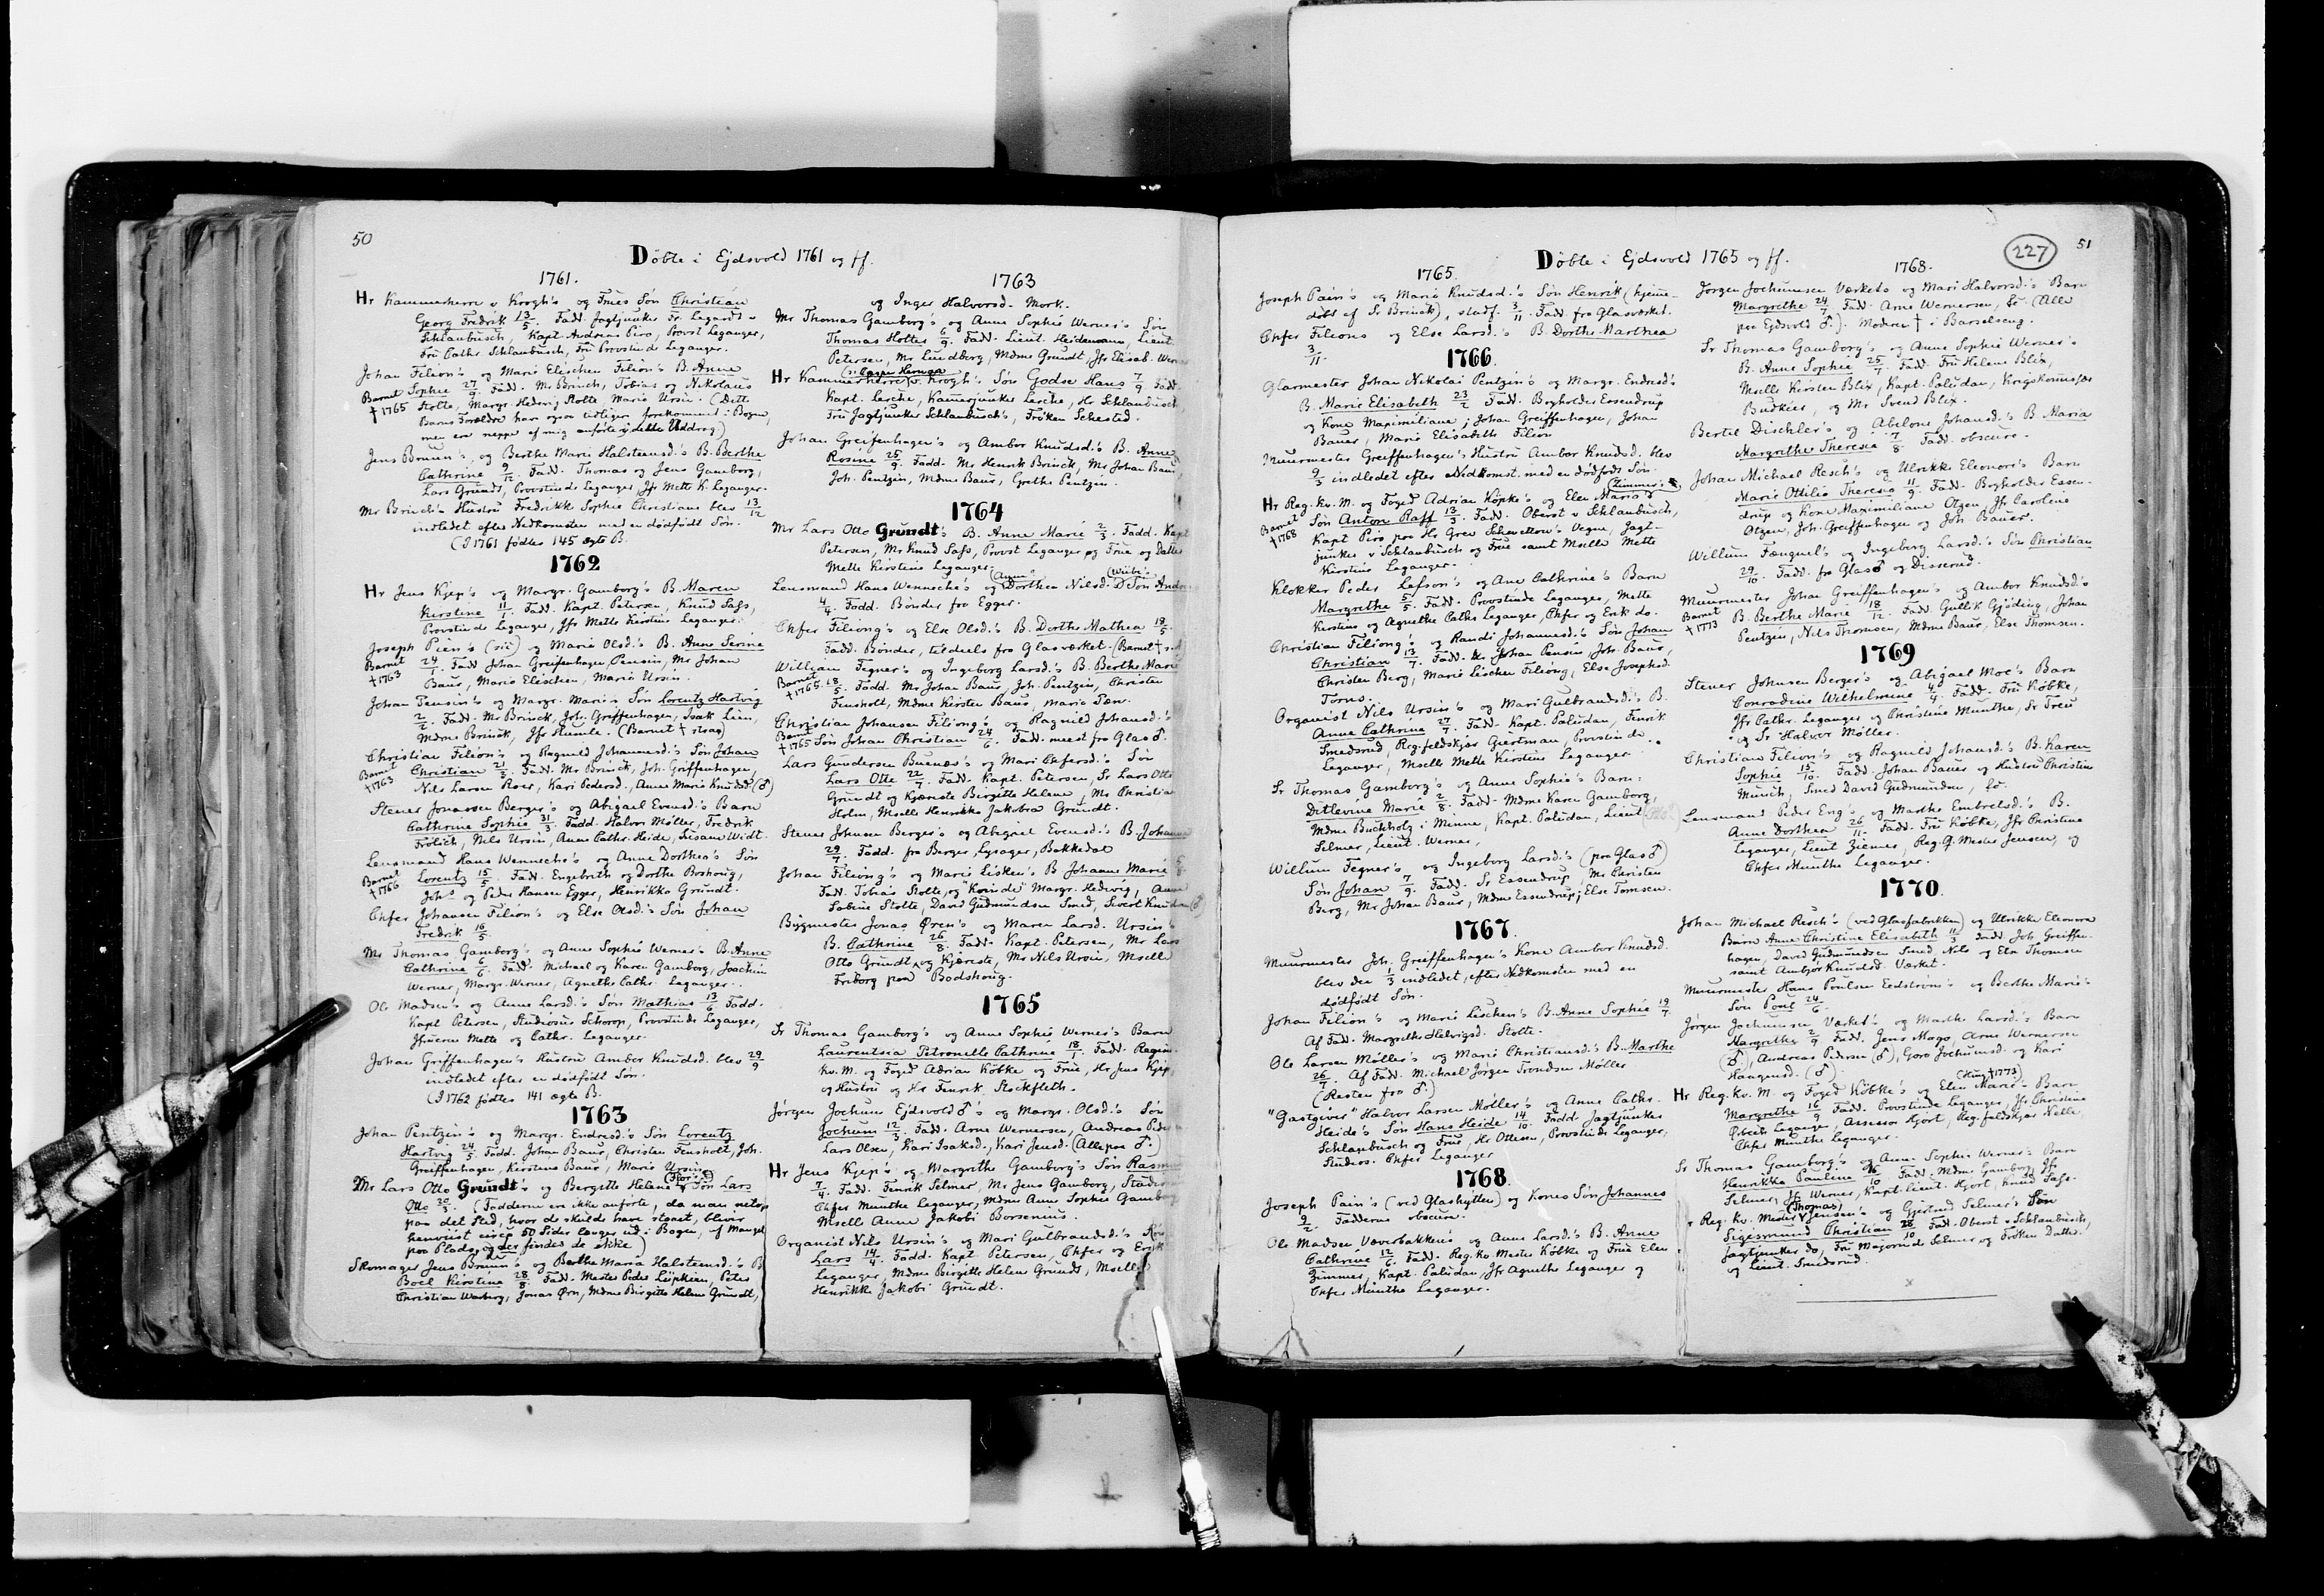 50
Döbte i Ejdsvold 1761 og ff.
1761.
Hr Kammerherre v Krogh's og Frues Søn Christian
Georg Fredrik 13/5. Fadd. Jagtjunker Fr. Legards v
Schlanbusch, Kapt. Andreas Piro, Provst Leganger,
Fru Cathr Schlanbusch, Fru Provstinde Leganger.
Johan Filion's og Marie Elischen Filion's B. Anne
Barnet Sophie 27/9. Fadd. Mr Brinck, Tobias og Nikolaus
† 1765 Stolte, Margr. Hedevig Stolte, Marie Ursin. (Dette
Barns Forældre har ogsaa tidligere forekommet i Bogen,
men ere neppe af mig anförte i dette Uddrag.)
Jens Bruun's og Berthe Marie Halsteensd.'s B. Berthe
Cathrine 9/12. Fadd. Thomas og Jens Gamborg,
Lars Grundt, Provstinde Leganger, Jfr Mette K. Leganger.
Mr Brinck's Hustru Fredrikk Sophie Christians blev 13/12
indledet efter Nedkomsten med en dødfødt Søn.
(I 1761 fødtes 145 ægte B.
1762
Hr Jens Kjep's og Margr. Gamborg's B. Maren
Kirstine 11/1. Fadd. Kapt. Petersen, Knud Safs,
Provstinde Leganger, Jfr Mette Kirstine Leganger.
Joseph Pien's (sic) og Marie Olsd.'s B. Anne Serine
Barnet 24/1. Fadd Johan Greifenhagen, Pensin, Mr Johan
† 1763 Baur, Marie Elischen, Marie Ursin.
Johan Pensin's og Margr. Marie's Søn Lorentz Hartvig
2/2. Fadd. Mr Brinck, Joh. Greffenhagen, Isak Lien,
Mdme Brinck, Jfr Stumle. (Barnet † strax)
Christian Filion's og Ragnild Johannesd.'s Søn Johan
Barnet Christian 21/3. Fadd. Mr Brinck, Joh. Griffenhagen,
† 1763 Nils Larsen Roer, Kari Pedersd., Anne Marie Knudsd. (♂)
Stener Jonassen Berger's og Abigael Evensd.'s Barn
Cathrine Sophie 31/3. Fadd. Halvor Møller, Fredrik
Frölich, Nils Ursin, Anne Cathr. Heide, Susane Widt.
Lensmand Hans Wenneche's og Anne Dorthea's Søn
Barnet Lorentz 15/5. Fadd. Engebreth og Dorthe Boshong,
† 1766 Joh. og Peder Hansen Egger, Henrikka Grundt.
Chfer Johansen Filion's og Else Olsd.'s Søn Johan
Fredrik 16/5.
Mr Thomas Gamborg's og Anne Sophie Werner's B. Anne
Cathrine 6/6. Fadd. Michael og Karen Gamborg, Joachim
Werner, Margr. Werner, Agnethe Cathr. Leganger.
Ole Madsen's og Anne Larsd.'s Søn Mathias 13/6 Fadd.
Kapt Petersen, Studiosus Schorop, Provstinde Leganger,
Jfruerne Mette og Cathr. Leganger.
Johan Griffenhagen's Hustru Ambor Knudsd. blev 29/9
indledet efter en dødfödt Søn.
(I 1762 fødtes 141 ægte B.
1763
Johan Pentzin's og Margr. Endresd.'s Søn Lorentz
Hartvig 24/5. Fadd. Johan Baur, Christen Fensholt, Joh.
Greiffenhagen, Kirstens Baur, Marie Ursin.
Mr Lars Otto Grundt's og Bergitte Helene Søn Lars
Otto 20/3. (Fadderne ere ikke anførte, da man netop
paa det Sted, hvor de skulde have staaet, bliver
henvist circa 50 Sider længer ud i Bogen, af Mangel
paa Plads, og der findes de ikke)
Skomager Jens Bruun's og Berthe Maria Halsteensd.'s B
Boel Kirstine 28/8. Fadd. Mester Peder Lipkien, Peter
Christian Warberg, Jonas Ørn, Mdme Birgitte Helene Grundt,
1763
og Inger Halvorsd. Mork.
Mr Thomas Gamborg's og Anne Sophie Werner's Søn
Thomas Holter 6/9. Fadd. Lieut. Heidemann, Lieut
Petersen, Mr Lundberg, Mdme Grundt, Jfr Elisab. Wern
Hr Kammerherre v. Krogh's Søn Godse Hans 7/9 Fadd.
Kapt. Lerche, Kamerjunker Lerche, Hr Schlanbusch
Fru Jagtjunker Schlanbusch's, Frøken Sehested.
Johan Greifenhagen's og Ambor Knudsd.'s B. Anne
Rosine 25/9. Fadd. Mr Henrik Brinck, Mr Johan Baur
Joh. Pentzin, Mdme Baur, Grethe Pentzin.
1764
Mr Lars Otto Grundt's B. Anne Marie 2/3. Fadd. Kapt
Petersen, Mr Knud Safs, Provst Leganger og Frue og Datter
Mette Kirstine Leganger.
Lensmand Hans Wenneche's og (Anne) Dorthea Nilsd. Søn Andr
4/4. Fadd. Bønder fra Egger.
Chfer Filiong's og Else Olsd.'s B. Dorthe Mathea 19/5.
Fadd. Bønder, tildeels fra Glasværket. (Barnet †
William Fegner's og Ingeborg Larsd.'s B. Berthe Marie
Barnet † 1765. 18/5. Fadd. Mr Johan Baur, Joh. Pentzin, Christen
Fensholt, Mdme Kirsten Baur, Marie Pen.
Christian Johansen Filiong's og Ragnild Johansd.'s
Barnet † 1765 Søn Johan Christian 24/6. Fadd. meest fra Glas♂.
Lars Gundersen Buenæs's og Mari Chfersd.'s Søn
Lars Otte 22/7. Fadd. Kapt. Petersen, Sr Lars Otto
Grundt og Kjæreste Birgitte Helene, Mr Christia
Holm, Mselle Henrikke Jakobra Grundt.
Stener Johnsen Berger's og Abigael Evensd.'s B. Johanne
29/7. Fadd. fra Berger, Lysager, Bakkedal
Johan Filiong's og Marie Lisken's B Johanne Marie
Fadd. Tobias Stolte, og "Kvinde" Margr. Hedevig, Anne
Sabine Stolte, David Gudmundsen Smed, Sivert Knudsen (♂)
Bygmester Jonas Øren's og Maren Larsd. Ursin's
B. Cathrine 26/8. Fadd. Kapt. Petersen, Mr Lars
Otto Grundt og Kjæreste, Mr Nils Ursin, Mselle
Friborg paa Bodshoug.
1765
Sr Thomas Gamborg's og Anne Sophie Werner's Barn
Laurentsia Petronelle Cathrine 18/1. Fadd. Regim.
Kv. M. og Foged Adrian Köbke og Frue, Hr Jens Kjep,
og Hustru og Hr Fenrik Stockfleth.
Jørgen Jochum Ejdsvold ♂'s og Margr. Olsd.'s Søn
Jochum 12/3. Fadd. Arne Wernersen, Andreas Peders
Lars Olsen, Kari Isaksd., Kari Jensd. (Alle paa ♂.)
Hr Jens Kjep's og Margrethe Gamborg's Søn Rasm
7/4. Fadd. Fenrik Selmer, Mr Jens Gamborg, Studios
Chfer Munthe Leganger, Mdme Anne Sophie Gamborg
Mselle Anne Jakobi Borsenius.
Organist Nils Ursin's og Mari Gulbrandsd.'s Søn
Lars 14/4. Fadd. Kapt Petersen, Chfer og Erik
Leganger, Mdme Birgitte Helene Grundt, Mselle
Henrikke Jakobi Grundt.
227
51
Döbte i Ejdsvold 1765 og ff.
1765.
Joseph Pain's og Marie Knudsd.'s Søn Henrik (hjemme-
döbt af Sr Brinck), stadf. 3/11. Fadd. fra Glasværket.
Chfer Filions og Else Larsd.'s B. Dorthe Marthea
3/11.
1766.
Glarmester Johan Nikolai Pentzin's og Margr. Endresd's
B. Marie Elisabeth 23/2 Fadd. Bogholder Essendrup
og Kone Maximiliane; Johan Greiffenhagen, Johan
Bauer, Marie Elisabeth Filion
Muurmester Greiffenhagen's Hustru Ambor Knudsd. blev
9/3 indledet efter Nedkomst. med en dødfødt Søn.
Hr Reg. Kv. M. og Foged Adrian Köpke's og Elen Maria (Zimmer's)
Barnet † 1768 Søn Anton Raff 13/3. Fadd. Oberst v Schlanbusch,
Kapt Piro paa Hr Grev Schmettow's Vegne, Jagt-
junker v Schlanbusch og Frue samt Mselle Mette
Kirstine Leganger.
Klokker Peder Lefson's og Ane Cathrine's Barn
Margrethe 5/5. Fadd. Provstinde Leganger, Mette
Kirstine og Agnethe Cathr Leganger, Chfer og Erik do.
Christian Filiong's og Randi Johannesd.'s Søn Johan
Christian 13/7. Fadd. Johan Pensin, Joh. Baur,
Christen Berg, Marie Lischen Filiong, Else Josephsd.
Torns.
Organist Nils Ursin's og Mari Gulbrandsd.'s B.
Anne Cathrine 27/7. Fadd. Kapt. Paludan, Fenrik
Smedsrud, Reg. feldskjær Giertman, Provstinde
Leganger, Mselle Mette Kirstine Leganger.
Sr Thomas Gamborg's og Anne Sophie's Barn:
Ditlevine Marie 2/8. Fadd. Mdme Karen Gamborg,
Mdme Buchholz i Minne, Kapt. Paludan, Lieut
Selmer, Lieut. Werner,
Willum Fegner's og Ingeborg Larsd.'s (paa Glas♂)
Søn Johan 7/9. Fadd. Sr Essendrup, Mr Christen
Berg, Mr Johan Baur, Mdme Essendrup; Else Tomsen.
1767.
Muurmester Joh. Greiffenhagen's Kone Ambor Knudsd.
blev den 1/3 indledet, efter Nedkomsten med en
dødfödt Søn.
Johan Filion's og Marie Lischen's B. Anne Sophie 19/7.
Af Fadd. Margrethe Helvigsd. Stolte.
Ole Larsen Møller's og Marie Christiansd.'s B. Marthe
26/7. Af Fadd. Michael Jørgen Trondsen Møller
(Resten fra ♂.)
"Gastgiver" Halvor Larsen Møller's og Anne Cathr.
Heide's Søn Hans Heide 14/10. Fadd Jagtjunker
Schlanbusch og Frue, Hr Ottesen, Provstinde Leganger,
Studios. Chfer Leganger
1768.
Joseph Pain's (ved Glashytten) og Kones Søn Johannes
9/2. Fadderne obscure.
Ole Madsen Vaverbakken's og Anne Larsd.'s B. Anne
Cathrine 12/6. Fadd. Reg. Kv Mester Köbke og Frue Elen
Zimmer, Kapt. Paludan, Jfr Agnethe Leganger og
Chfer Munthe Leganger.
1768.
Jørgen Jochumsen Værkets og Mari Halvorsd.'s Barn
Margrethe 24/7 Fadd. Arne Wernersen, &c (Alle
paa Ejdsvold ♂.). Moderen † i Barselseng.
Sr Thomas Gamborg's og Anne Sophie Werner's
B. Anne Sophie 25/7. Fadd Fru Helene Blix,
Mselle Kirsten Blix, Kapt. Paludan, Krigskommisær
Budtkier, og Mr Svend Blix.
Bertel Dischler's og Abelone Johansd.'s B. Maria
Margrithe Theresia 7/8 Fadd. obscure.
Johan Michael Resch's og Ulrikke Eleonore's Barn
Marie Ottilie Theresia 11/9. Fadd. Bogholder Essen-
drup og Kone Maximiliane Otgen, Jfr Caroline
Otgen, Joh. Greiffenhagen og Joh. Bauer.
Willum Fængnel's og Ingeborg Larsd.'s Søn Christian
29/10. Fadd. fra Glas♂ og Disserud.
Muurmester Johan Greiffenhagen's og Ambor Knudsd.'s
Barnet † 1773 B. Berthe Marie 18/12. Fadd. Gullik Gjöding, Johan
Pentzen, Nils Thomsen, Mdme Baur, Else Thomsen.
1769
Stener Johnsen Berger's og Abigael Moe's Barn
Conradine Wilhelmine 4/4. Fadd. Fru Köbke,
Jfr Cathr. Leganger og Christine Munthe, Sr Treu
og Sr Halvor Møller.
Christian Filion's og Ragnild Johansd.'s B. Karen
Sophie 15/10. Fadd. Johan Bauer og Hustru Christine
Munch, Smed David Gudmundsen, &c.
Lensmand Peder Eng's og Marthe Embretsd.'s B.
Anne Dorthea 26/11. Fadd. Fru Köbke, Jfr Christine
Leganger, Lieut Ziemer, Reg. Q. Mester Jensen, og
Chfer Munthe Leganger.
1770.
Johan Michael Resch's (ved Glasfabrikken) og Ulrikke Eleonora
Barn Anne Christine Elisabeth 11/3 Fadd. Joh. Greiffen-
hagen, David Gudmundsen Smed, Nils og Else Thomsen
samt Ambjør Knudsd. Værket.
Muurmester Hans Poulsen Eedstrøm's og Berthe Marie's
Søn Poul 24/6.
Jørgen Jochumsen Værket's og Marthe Larsd.'s Barn
Margrethe 2/9 Fadd. Jens Mago, Arne Wernersen
(♂), Andreas Pedersen (♂), Goro Jochumsd. og Kari
Haagensd. (♂)
Hr Reg. Kv. M. og Foged Köbke's og Elen Marie's Barn (Hun † 1773)
Margrethe 16/9 Fadd. Provstinde Leganger, Jfr Christine
Leganger, Assessor Hjort, Reg. feldskjær Nelle
Chfer Munthe Leganger.
Sr Thomas Gamborg's og Anne Sophie Werner's Barn
Henrikka Pauline 16/10 Fadd. Mdme Gamborg, Jfr
Selmer, Jfr Werner, Kapt. Lieut. Hjort, Knud Safs.
Reg. Kv. Mester (Thomas) Jensen's og Gjertrud Selmer's Søn
Sigismund Christian 28/10 Fadd. Oberst v Schlanbusch,
Jagtjunker do, Fru Majorinde Selmer og Frøken Datter
og Lieut. Smedsrud.